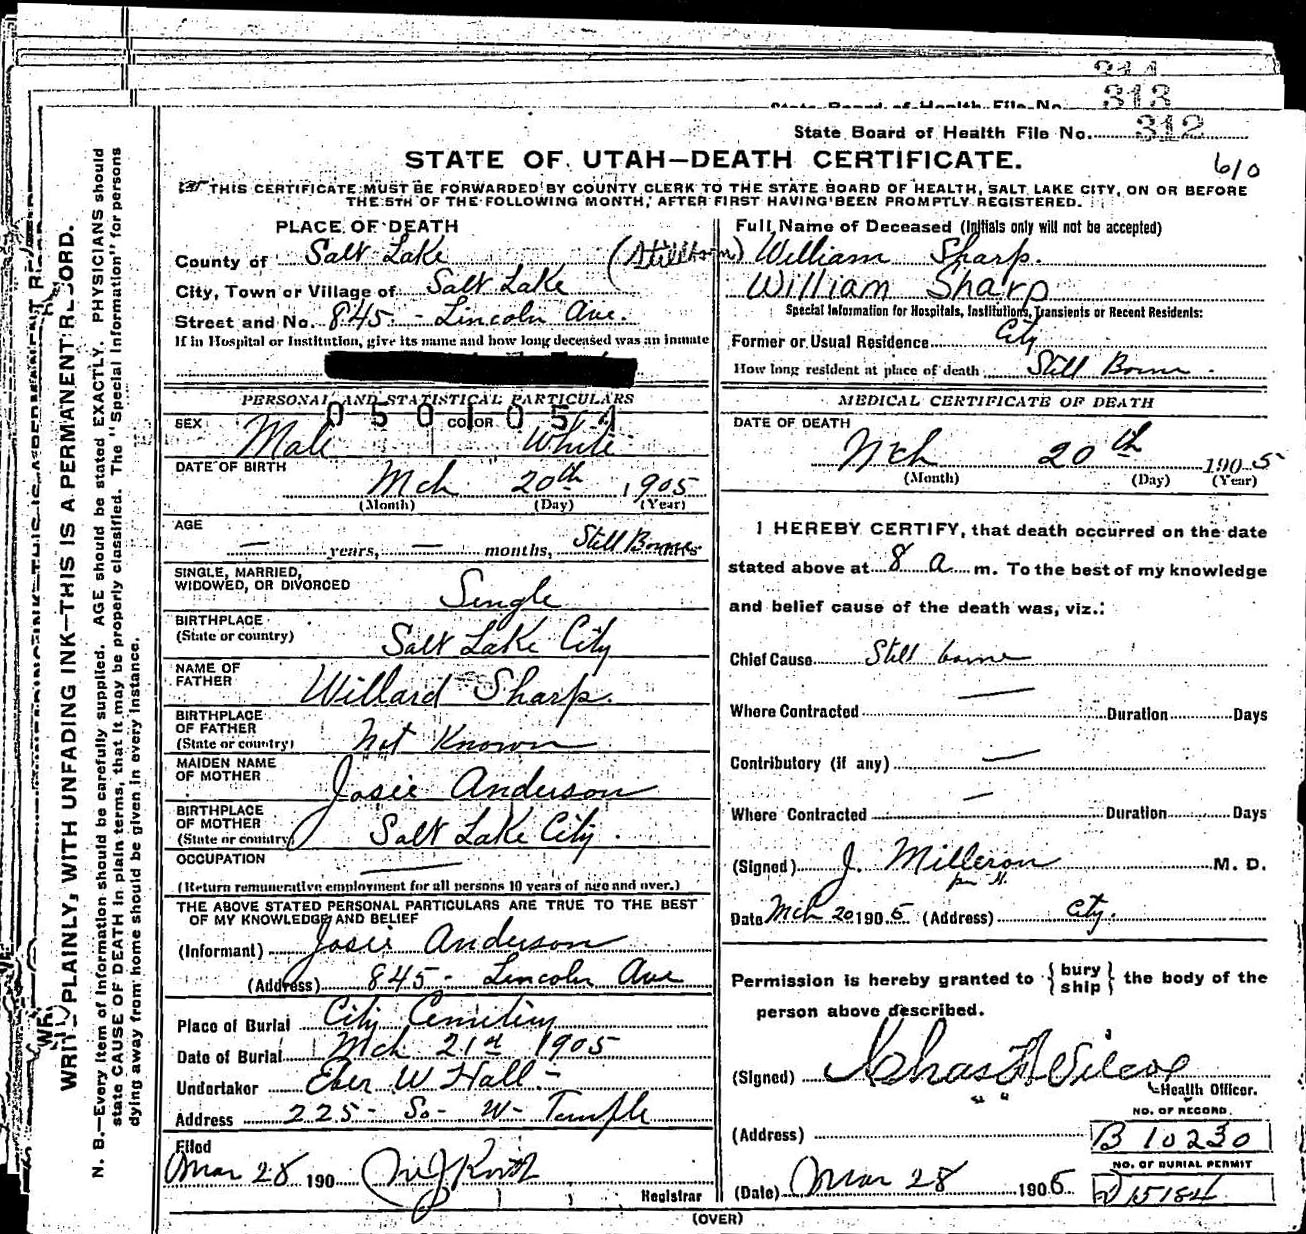 314
313
State Board of Health File No.
State Board of Health File No. 312
STATE OF UTAH—DEATH CERTIFICATE.
610
THIS CERTIFICATE MUST BE FORWARDED BY COUNTY CLERK TO THE STATE BOARD OF HEALTH, SALT LAKE CITY, ON OR BEFORE
THE 5TH OF THE FOLLOWING MONTH, AFTER FIRST HAVING BEEN PROMPTLY REGISTERED.
PLACE OF DEATH
County of Salt Lake
City, Town or Village of Salt Lake
Street and No. 845 - Lincoln Ave.
If in Hospital or Institution, give its name and how long deceased was an inmate
Full Name of Deceased (Initials only will not be accepted)
(Stillborn) William Sharp.
William Sharp
Special Information for Hospitals, Institutions, Transients or Recent Residents:
Former or Usual Residence City
How long resident at place of death Still Borne
PERSONAL AND STATISTICAL PARTICULARS
0501051
SEX Male COLOR White
DATE OF BIRTH
Mch 20th 1905
(Month) (Day) (Year)
AGE
— years, — months, Still Borne
SINGLE, MARRIED,
WIDOWED, OR DIVORCED Single
BIRTHPLACE
(State or country) Salt Lake City
NAME OF
FATHER Willard Sharp.
BIRTHPLACE
OF FATHER
(State or country) Not Known
MAIDEN NAME
OF MOTHER Josie Anderson
BIRTHPLACE
OF MOTHER
(State or country) Salt Lake City.
OCCUPATION —
(Return remunerative employment for all persons 10 years of age and over.)
THE ABOVE STATED PERSONAL PARTICULARS ARE TRUE TO THE BEST
OF MY KNOWLEDGE AND BELIEF
(Informant) Josie Anderson
(Address) 845 - Lincoln Ave
Place of Burial City Cemetery
Date of Burial Mch 21st 1905
Undertaker Eber W Hall -
Address 225 - So - W - Temple
Filed
Mar 28 190
Registrar
MEDICAL CERTIFICATE OF DEATH
DATE OF DEATH
Mch 20th 1905
(Month) (Day) (Year)
I HEREBY CERTIFY, that death occurred on the date
stated above at 8 a m. To the best of my knowledge
and belief cause of the death was, viz.:
Chief Cause Still borne
Where Contracted — Duration Days
Contributory (if any) —
Where Contracted — Duration Days
(Signed) J. Milleron M. D.
Date Mch 20 1905 (Address) City.
Permission is hereby granted to { bury
ship } the body of the
person above described.
(Signed) Chas F Wilcox
Health Officer.
(Address)
NO. OF RECORD.
B 10230
NO. OF BURIAL PERMIT
15184
(Date) Mar 28 1905
(OVER)
WRITE PLAINLY, WITH UNFADING INK—THIS IS A PERMANENT RECORD.
N. B.—Every item of information should be carefully supplied. AGE should be stated EXACTLY. PHYSICIANS should
state CAUSE OF DEATH in plain terms, that it may be properly classified. The "Special Information" for persons
dying away from home should be given in every instance.